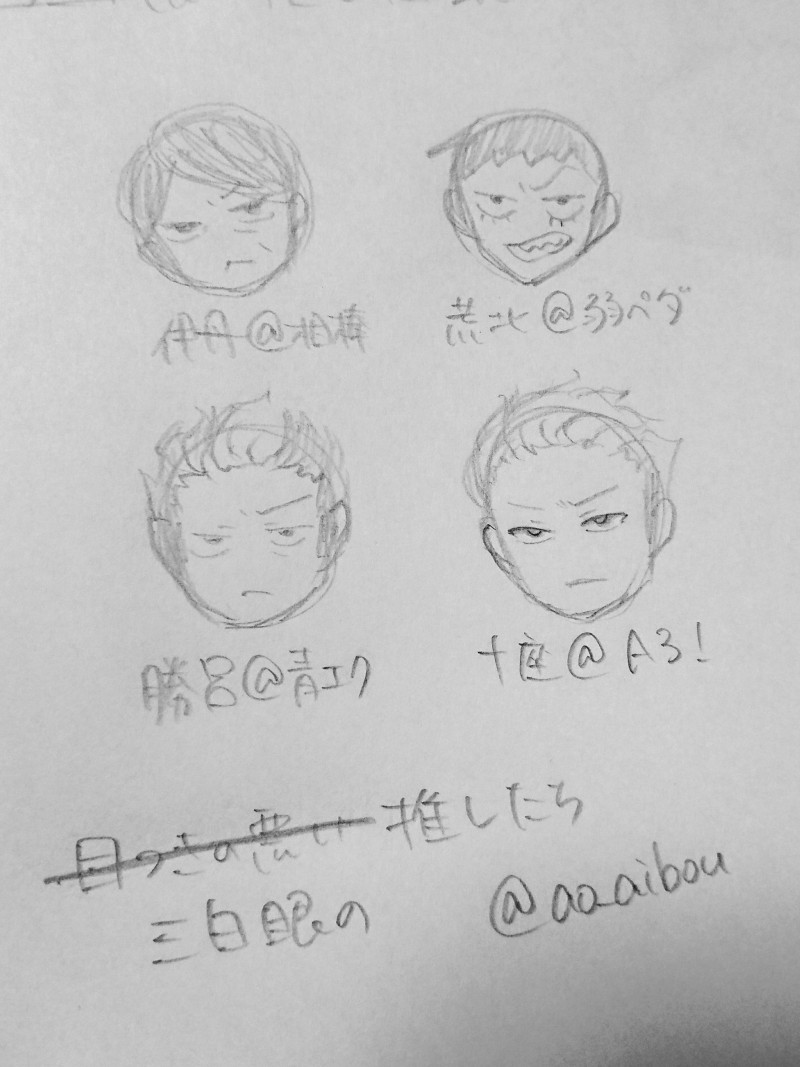 伊丹@相棒
荒北@弱ペダ
勝呂@青エク
十座@A3!
目つきの悪い推したち
三白眼の
@aoaibou